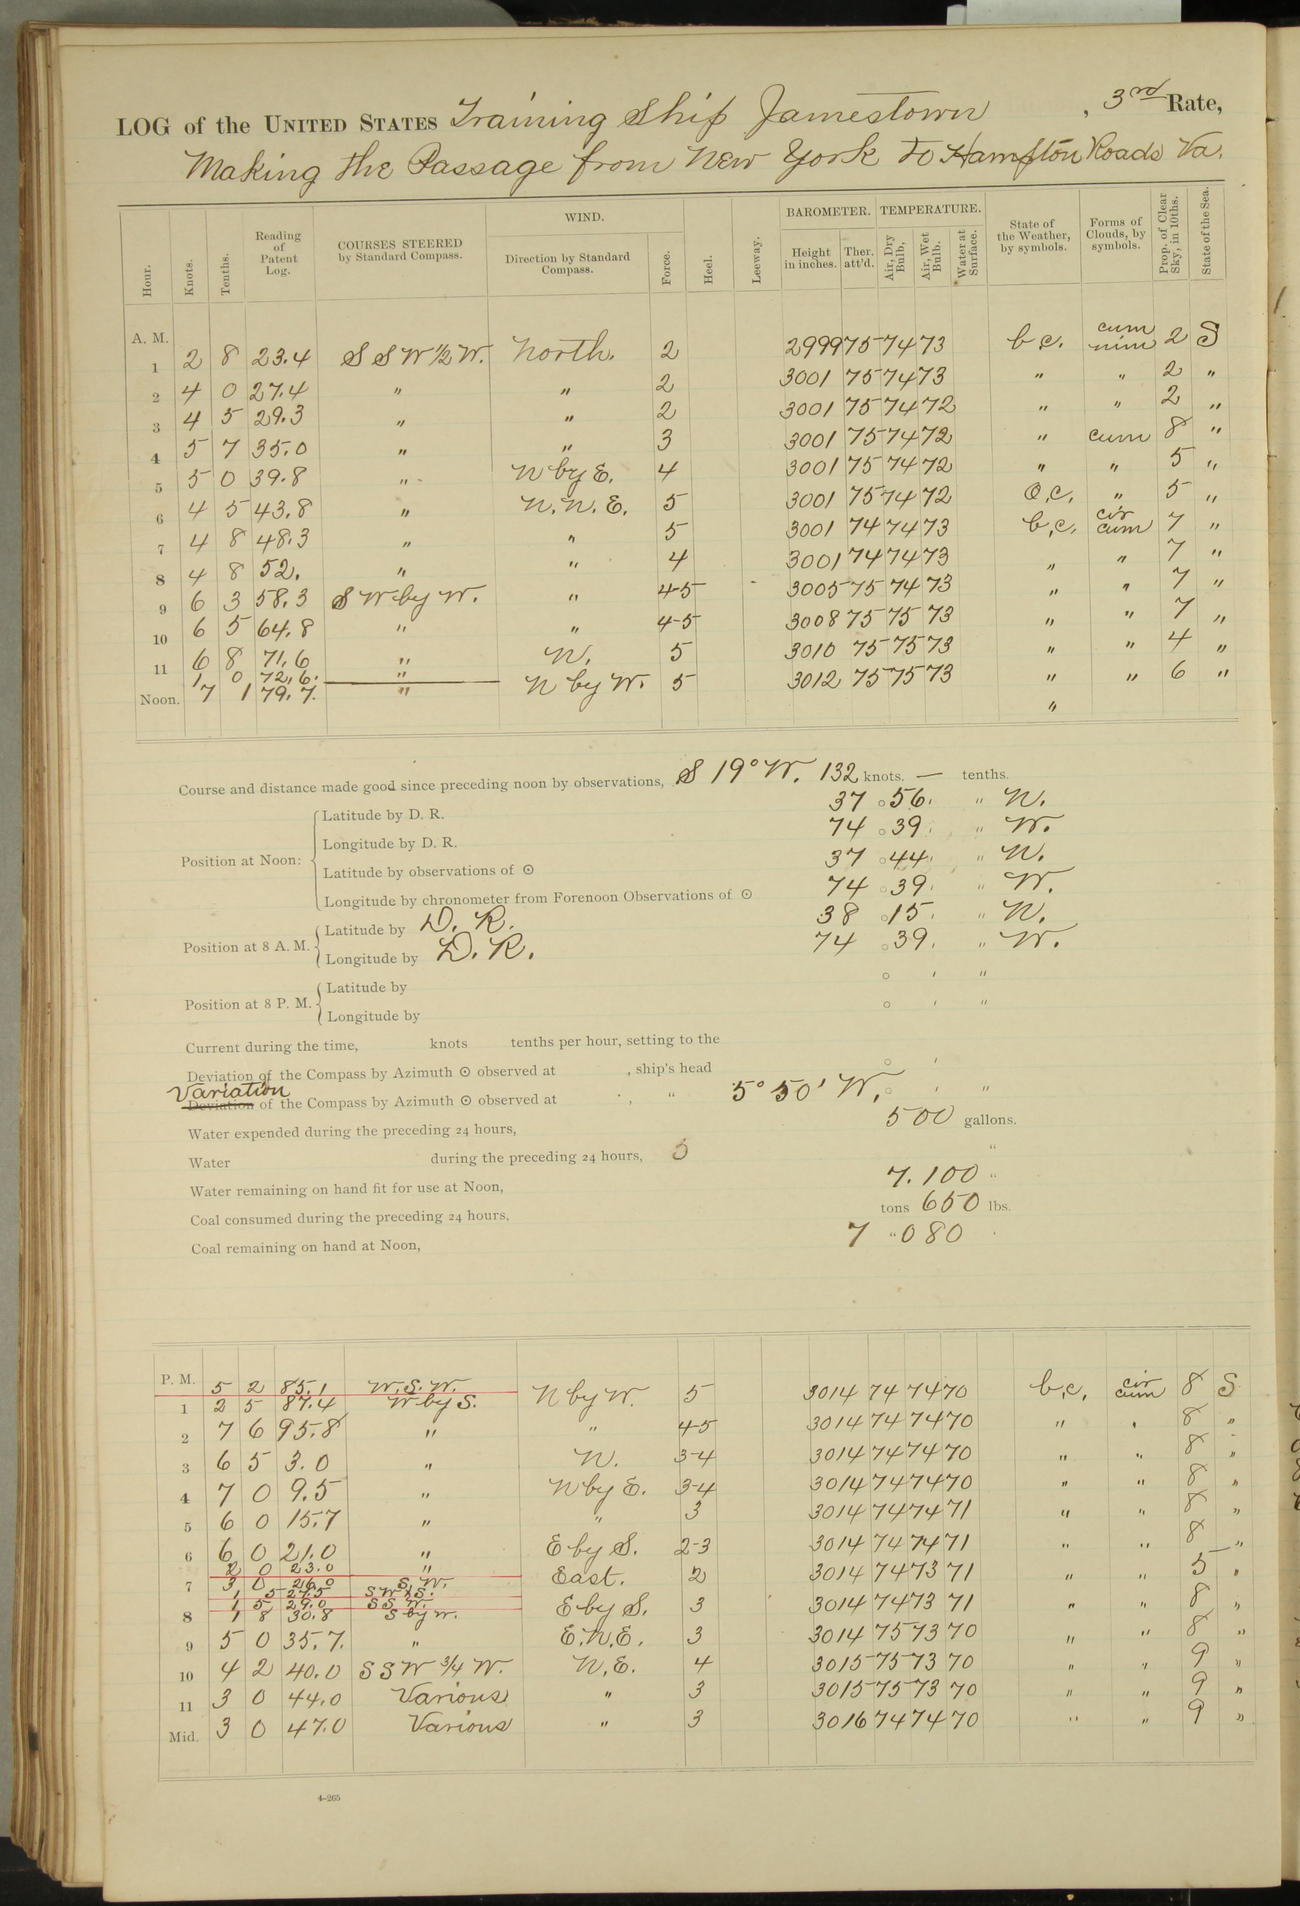 LOG of the UNITED STATES Training Ship Jamestown, 3rd Rate,
Making the Passage from New York to Hampton Roads Va.
Hour. Knots. Tenths. Reading of Patent Log. COURSES STEERED by Standard Compass. WIND. Direction by Standard Compass. Force. Heel. Leeway. BAROMETER. Height in inches. Ther. att'd. TEMPERATURE. Air, Dry Bulb, Air, Wet Bulb. Water at Surface. State of the Weather, by symbols. Forms of Clouds, by symbols. Prop. of Clear Sky, in 10ths. State of the Sea.
A. M.
1 2 8 23.4 S S W 1/2 W. North. 2 2999 75 74 73 b c. cum nim 2 S
2 4 0 27.4 " " 2 3001 75 74 73 " " 2 "
3 4 5 29.3 " " 2 3001 75 74 72 " " 2 "
4 5 7 35.0 " " 3 3001 75 74 72 " cum 8 "
5 5 0 39.8 " N by E. 4 3001 75 74 72 " " 5 "
6 4 5 43.8 " N. N. E. 5 3001 75 74 72 O.C. " 5 "
7 4 8 48.3 " " 5 3001 74 74 73 b.c. cir cum 7 "
8 4 8 52. " " 4 3001 74 74 73 " " 7 "
9 6 3 58.3 S W by W. " 4-5 3005 75 74 73 " " 7 "
10 6 5 64.8 " " 4-5 3008 75 75 73 " " 7 "
11 6 8 71.6 " N. 5 3010 75 75 73 " " 4 "
1 0 72.6. "
Noon. 7 1 79.7. " N by W. 5 3012 75 75 73 " " 6 "
"
Course and distance made good since preceding noon by observations, S 19° W. 132 knots. — tenths.
Position at Noon: Latitude by D. R. 37 ° 56 ' " N.
Longitude by D. R. 74 ° 39 ' " W.
Latitude by observations of ☉ 37 ° 44 ' " N.
Longitude by chronometer from Forenoon Observations of ☉ 74 ° 39 ' " W.
Position at 8 A. M. Latitude by D. R. 38 ° 15 ' " N.
Longitude by D. R. 74 ° 39 ' " W.
Position at 8 P. M. Latitude by ° ' "
Longitude by ° ' "
Current during the time, knots tenths per hour, setting to the
Deviation of the Compass by Azimuth ☉ observed at , ship's head ° '
Variation
Deviation of the Compass by Azimuth ☉ observed at , " 5° 50' W. ° ' "
Water expended during the preceding 24 hours, 500 gallons.
Water during the preceding 24 hours, "
Water remaining on hand fit for use at Noon, 7.100 "
Coal consumed during the preceding 24 hours, tons 650 lbs.
Coal remaining on hand at Noon, 7 " 080
P. M. 5 2 85.1 W. S. W.
1 2 5 87.4 W by S. N by W. 5 3014 74 74 70 b.c. cir cum 8 S
2 7 6 95.8 " " 4-5 3014 74 74 70 " " 8 "
3 6 5 3.0 " N. 3-4 3014 74 74 70 " " 8 "
4 7 0 9.5 " N by E. 3-4 3014 74 74 70 " " 8 "
5 6 0 15.7 " " 3 3014 74 74 71 " " 8 "
6 6 0 21.0 " E by S. 2-3 3014 74 74 71 " " 8 "
2 0 23.0 "
7 3 0 26.0 S. W. East. 2 3014 74 73 71 " " 5 "
1 5 27.5 S W x S.
1 5 29.0 S S W.
8 1 8 30.8 S by W. E by S. 3 3014 74 73 71 " " 8 "
9 5 0 35.7. " E. N. E. 3 3014 75 73 70 " " 8 "
10 4 2 40.0 S S W 3/4 W. N. E. 4 3015 75 73 70 " " 9 "
11 3 0 44.0 Various " 3 3015 75 73 70 " " 9 "
Mid. 3 0 47.0 Various " 3 3016 74 74 70 " " 9 "
4-265